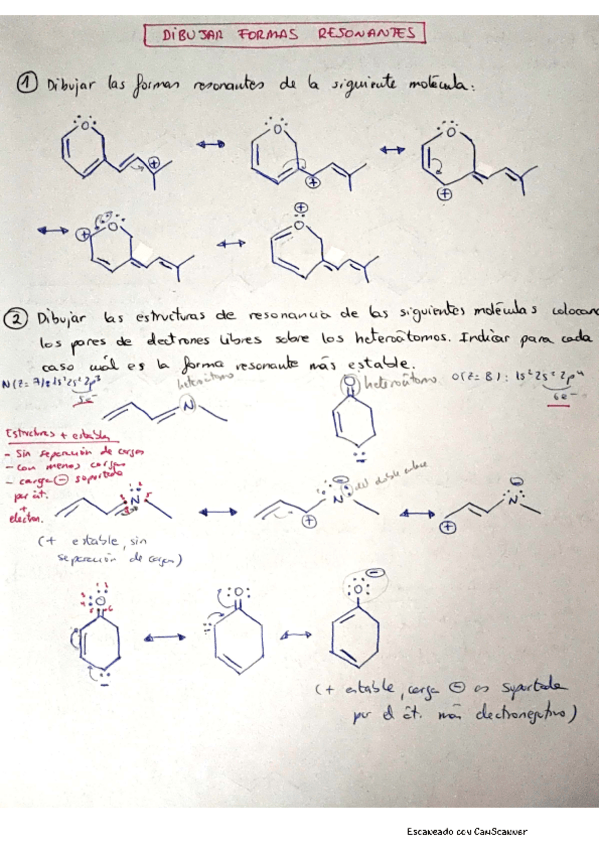 DIBUJAR FORMAS RESONANTES
① Dibujar las formas resonantes de la siguiente molécula:
② Dibujar las estructuras de resonancia de las siguientes moléculas colocand
los pares de electrones libres sobre los heteroátomos. Indicar para cada
caso cuál es la forma resonante más estable.
N(Z=7): 1s²2s²2p³
5e⁻
heteroátomo
heteroátomo
O(Z=8): 1s²2s²2p⁴
6e⁻
Estructuras + estables
- Sin separación de cargas
- con menos cargas
- carga ⊖ soportada
por át.
+
electron.
del doble enlace
(+ estable, sin
separación de cargas)
(+ estable, carga ⊖ es soportada
por el át. más electronegativo)
Escaneado con CamScanner